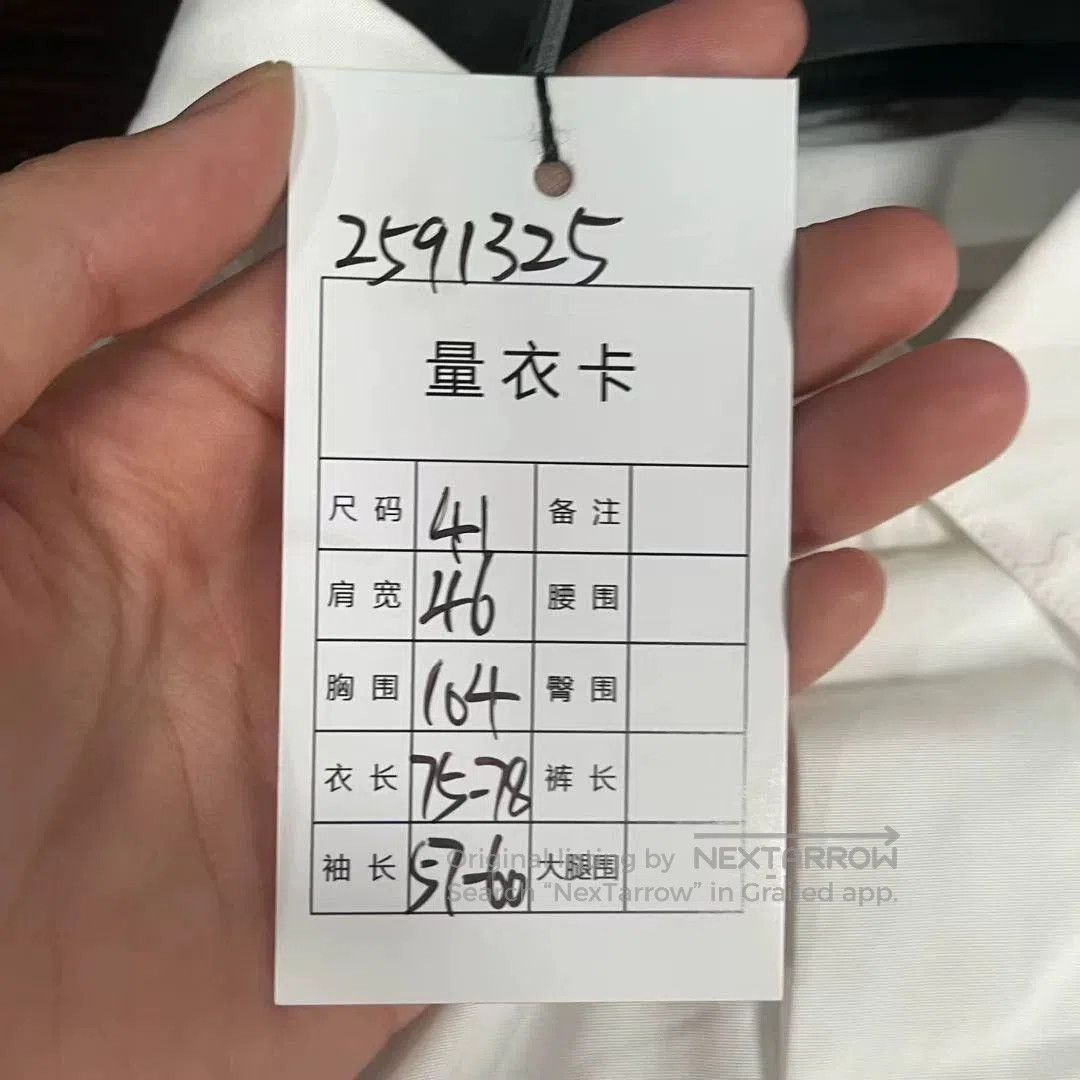 2591325
量衣卡
尺码 41 备注
肩宽 46 腰围
胸围 104 臀围
衣长 75-78 裤长
袖长 57-60 大腿围
Original listing by NEXTARROW
Search “NexTarrow” in Grailed app.